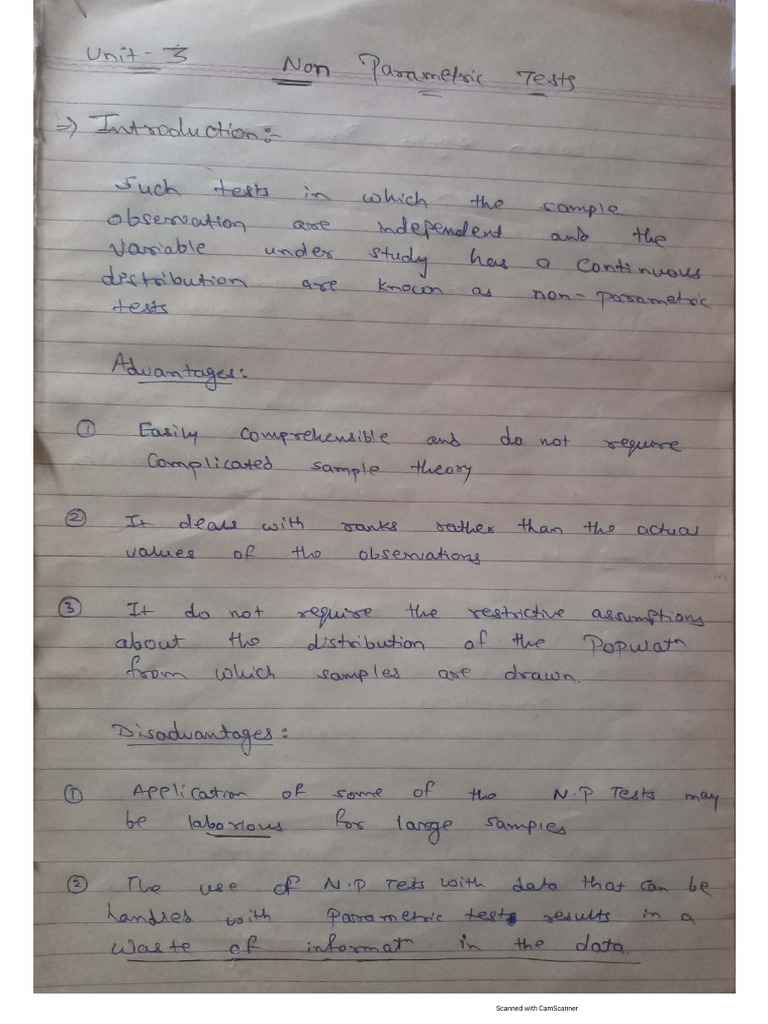 Unit - 3 Non Parametric Tests
⇒ Introduction:-
Such tests in which the sample
observation are independent and the
variable under study has a continuous
distribution are known as non-parametric
tests
Advantages:
① Easily comprehensible and do not require
complicated sample theory
② It deals with ranks rather than the actual
values of the observations
③ It do not require the restrictive assumptions
about the distribution of the Populatn
from which samples are drawn.
Disadvantages:
① Application of some of the N.P Tests may
be laborious for large samples
② The use of N.P Tests with data that can be
handled with Parametric tests results in a
waste of informatn in the data.
Scanned with CamScanner